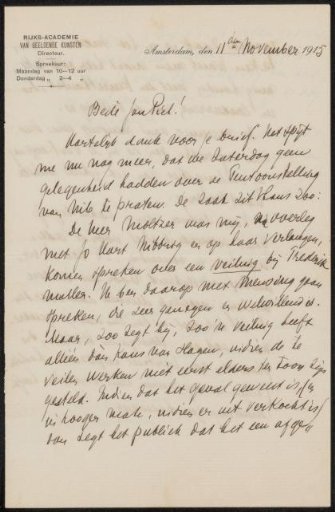 RIJKS-ACADEMIE
VAN BEELDENDE KUNSTEN
Directeur.
Spreekuur:
Maandag van 10—12 uur
Donderdag „ 2—4 „
Amsterdam, den 11den November 1915
Beste Jan Piet!
Hartelijk dank voor je brief. Het spijt
me nu nog meer, dat we Zaterdag geen
gelegenheid hadden over de Tentoonstelling
van Nib te praten. De zaak zit thans zoo:
De Heer Moltzer was mij, na overleg
met Jo Hart Nibbrig en op haar verlangen,
komen spreken over een veiling bij Frederik
Muller. Ik ben daarop met Mensing gaan
spreken, die zeer genegen en welwillend is.
Maar, zoo zegt hij, zoo'n veiling heeft
alleen dan kans van slagen, indien de te
veilen werken niet eerst elders ten toon zijn
gesteld. Indien dat het geval geweest is, (en
in hooger mate, indien er uit verkocht is)
dan zegt het publiek dat het een afge-